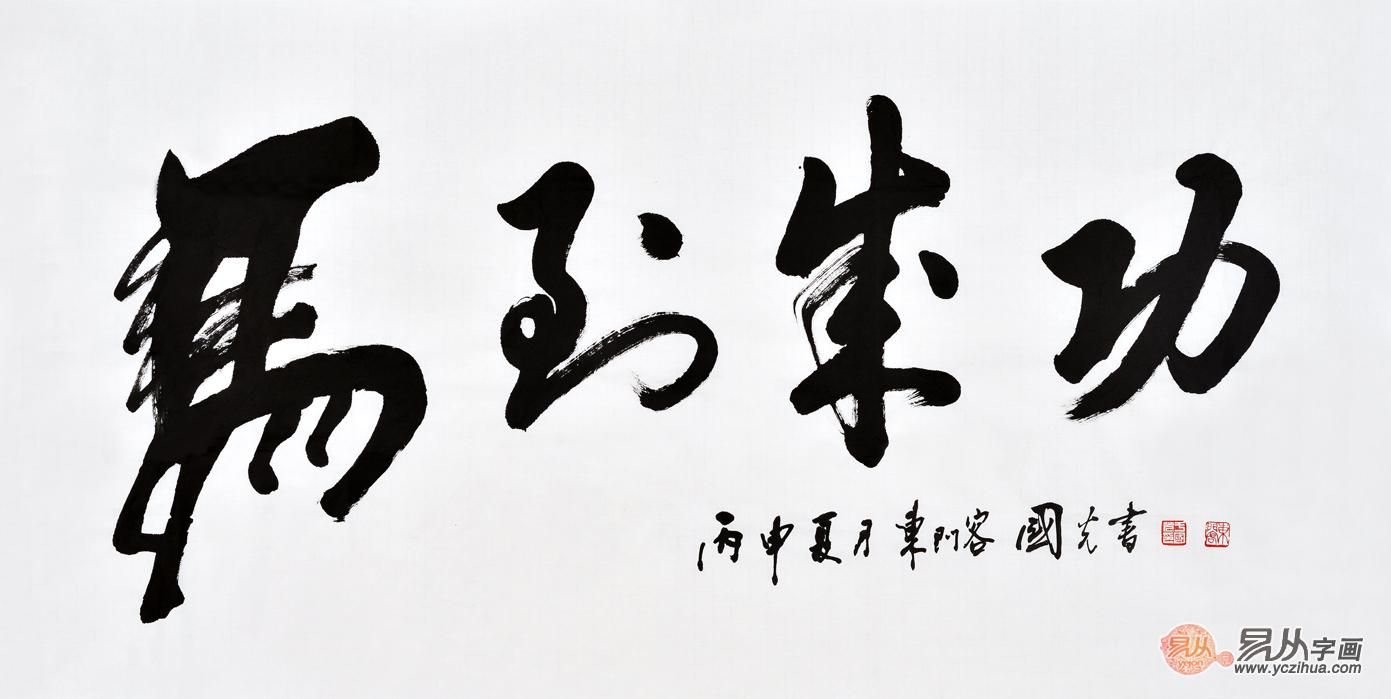 馬到成功
丙申夏月東門客國光書
易从
yeion
易从字画
www.yczihua.com